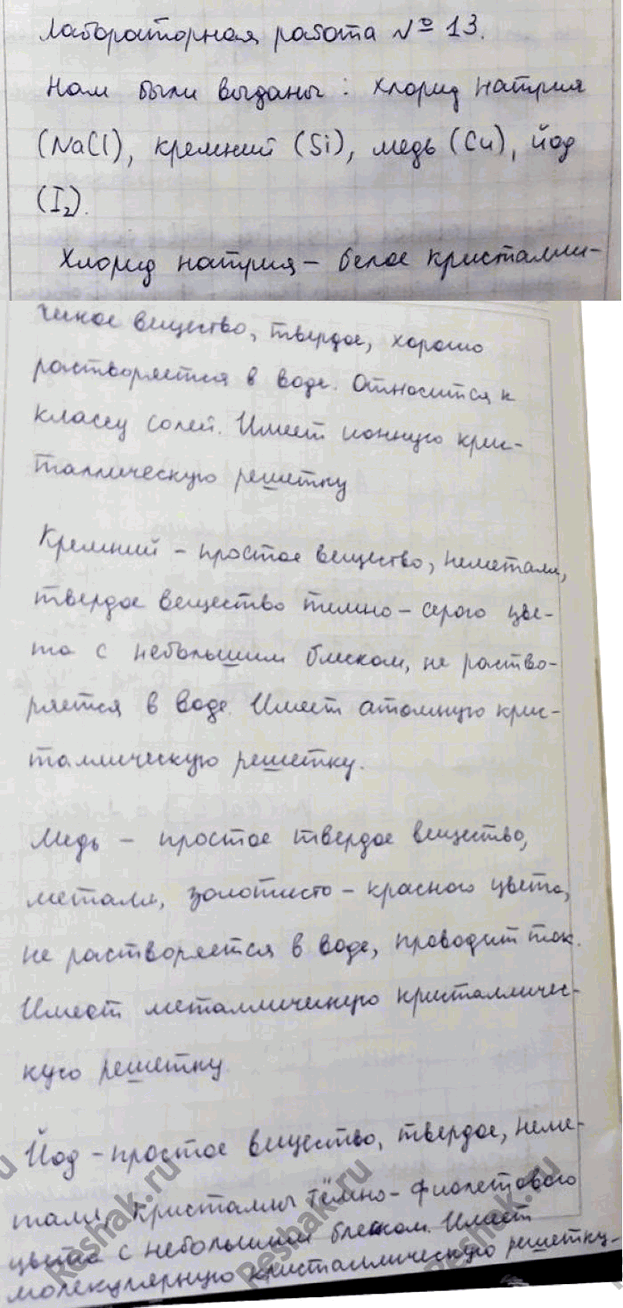 Лабораторная работа № 13.
Нам были выданы: хлорид натрия
(NaCl), кремний (Si), медь (Cu), йод
(I₂).
Хлорид натрия – белое кристалли-
ческое вещество, твердое, хорошо
растворяется в воде. Относится к
классу солей. Имеет ионную крис-
таллическую решетку
Кремний – простое вещество, неметалл,
твердое вещество темно-серого цве-
та с небольшим блеском, не раство-
ряется в воде. Имеет атомную крис-
таллическую решетку.
Медь – простое твердое вещество,
металл, золотисто-красного цвета,
не растворяется в воде, проводит ток.
Имеет металлическую кристалличес-
кую решетку.
Йод – простое вещество, твердое, неме-
талл, кристаллы тёмно-фиолетового
цвета с небольшим блеском. Имеет
молекулярную кристаллическую решетку.
Reshak.ru
Reshak.ru
Reshak.ru